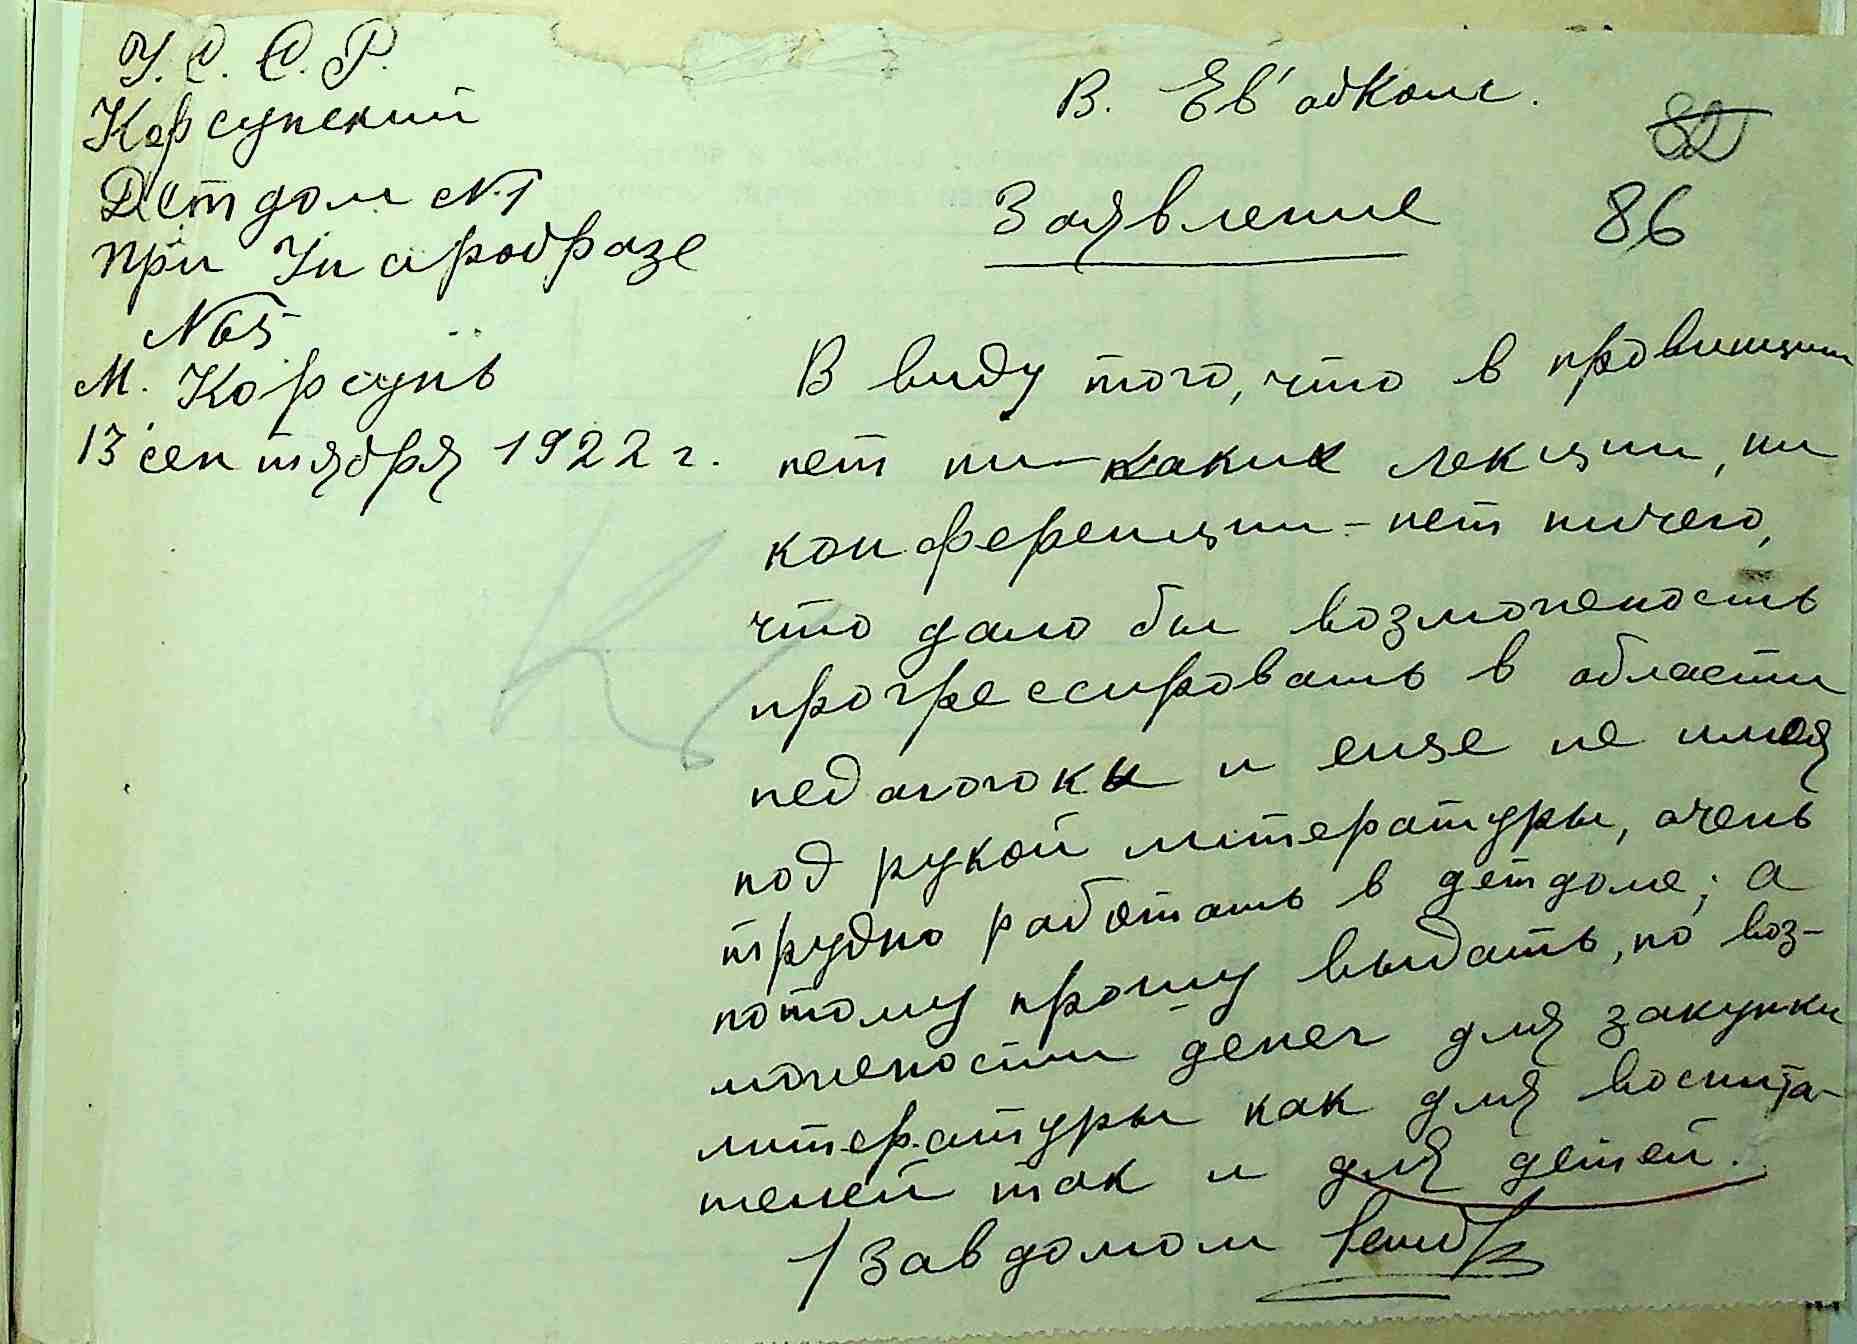 У. С. С. Р.
Корсунский
Детдом №1
при Инаробразе
№65
М. Корсунь
13 сентября 1922 г.
В. Ев'обком.
82
86
Заявление
В виду того, что в провинции
нет ни-каких лекции, ни
конференции - нет ничего,
что дало бы возможность
прогрессировать в области
педагогоки и еще не имея
под рукой литературы, очень
трудно работать в детдоме; а
потому прошу выдать, по воз-
можности денег для закупки
литературы как для воспита-
телей так и для детей.
/Завдомом